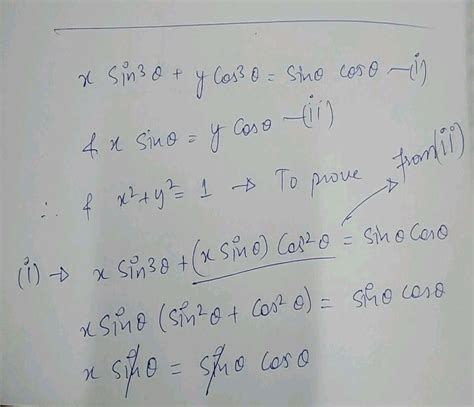 x Sin³θ + y Cos³θ = Sinθ Cosθ —(i)
& x Sinθ = y Cosθ —(ii)
∴ & x² + y² = 1 → To prove
from(ii)
(i) → x Sin³θ + (x Sinθ) Cos²θ = Sinθ Cosθ
x Sinθ (Sin²θ + Cos²θ) = Sinθ Cosθ
x Sinθ = Sinθ Cosθ